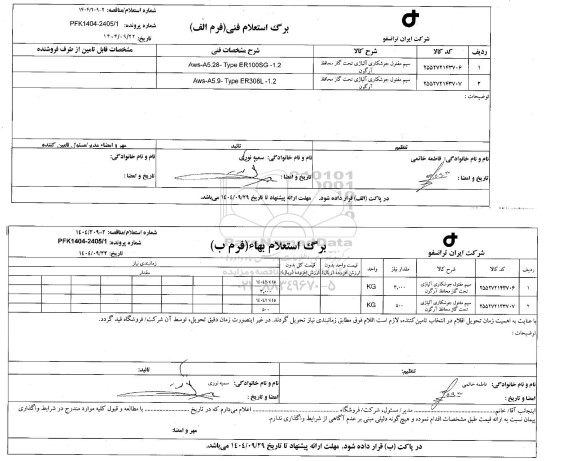 شماره استعلام/مناقصه: ۱۴۰۴/۲۰۹۰۲
برگ استعلام فنی(فرم الف)
شماره پرونده: PFK1404-2405/1
شرکت ایران ترانسفو
تاریخ: ۱۴۰۴/۰۹/۲۲
ردیف کد کالا شرح کالا شرح مشخصات فنی مشخصات قابل تامین از طرف فروشنده
۱ ۲۵۵۲۷۲۱۴۳۷۰۶ سیم مفتول جوشکاری آلیاژی تحت گاز محافظ آرگون Aws-A5.28- Type ER100SG -1.2
۲ ۲۵۵۲۷۲۱۴۳۷۰۷ سیم مفتول جوشکاری آلیاژی تحت گاز محافظ آرگون Aws-A5.9- Type ER308L -1.2
توضیحات :
تنظیم تائید مهر و امضاء مدیر/مسئول تامین کننده
نام و نام خانوادگی: فاطمه خاتمی نام و نام خانوادگی: سمیه نوری نام و نام خانوادگی:
تاریخ و امضا : تاریخ و امضا : تاریخ و امضا :
در پاکت (الف) قرار داده شود. مهلت ارائه پیشنهاد تا تاریخ ۱۴۰۴/۰۹/۲۹ می‌باشد.
شماره استعلام/مناقصه: ۱۴۰۴/۲۰۹۰۲
برگ استعلام بهاء(فرم ب)
شماره پرونده: PFK1404-2405/1
شرکت ایران ترانسفو
تاریخ: ۱۴۰۴/۰۹/۲۲
ردیف کد کالا شرح کالا مقدار نیاز واحد قیمت واحد بدون قیمت کل بدون زمانبندی نیاز
مقدار
۱ ۲۵۵۲۷۲۱۴۳۷۰۶ سیم مفتول جوشکاری آلیاژی تحت گاز محافظ آرگون ۳,۰۰۰ KG ۳,۰۰۰
۲ ۲۵۵۲۷۲۱۴۳۷۰۷ سیم مفتول جوشکاری آلیاژی تحت گاز محافظ آرگون ۵۰۰ KG ۵۰۰
با عنایت به اهمیت زمان تحویل اقلام در انتخاب تامین‌کننده، لازم است اقلام فوق مطابق زمانبندی نیاز تحویل گردند. در غیر اینصورت زمان دقیق تحویل، توسط آن شرکت/ فروشگاه قید گردد.
توضیحات :
تنظیم: تائید:
نام و نام خانوادگی: فاطمه خاتمی نام و نام خانوادگی: سمیه نوری
امضا و تاریخ : امضا و تاریخ :
اینجانب آقا/ خانم مدیر/ مسئول، شرکت/ فروشگاه اعلام می‌دارم که در تاریخ با مطالعه و قبول کلیه موارد مندرج در شرایط واگذاری
پیمان نسبت به ارائه قیمت طبق مشخصات اقدام نموده و هیچ‌گونه دلیلی مبنی بر عدم آگاهی از شرایط واگذاری ندارم.
مهر و امضا:
در پاکت (ب) قرار داده شود. مهلت ارائه پیشنهاد تا تاریخ ۱۴۰۴/۰۹/۲۹ می‌باشد.